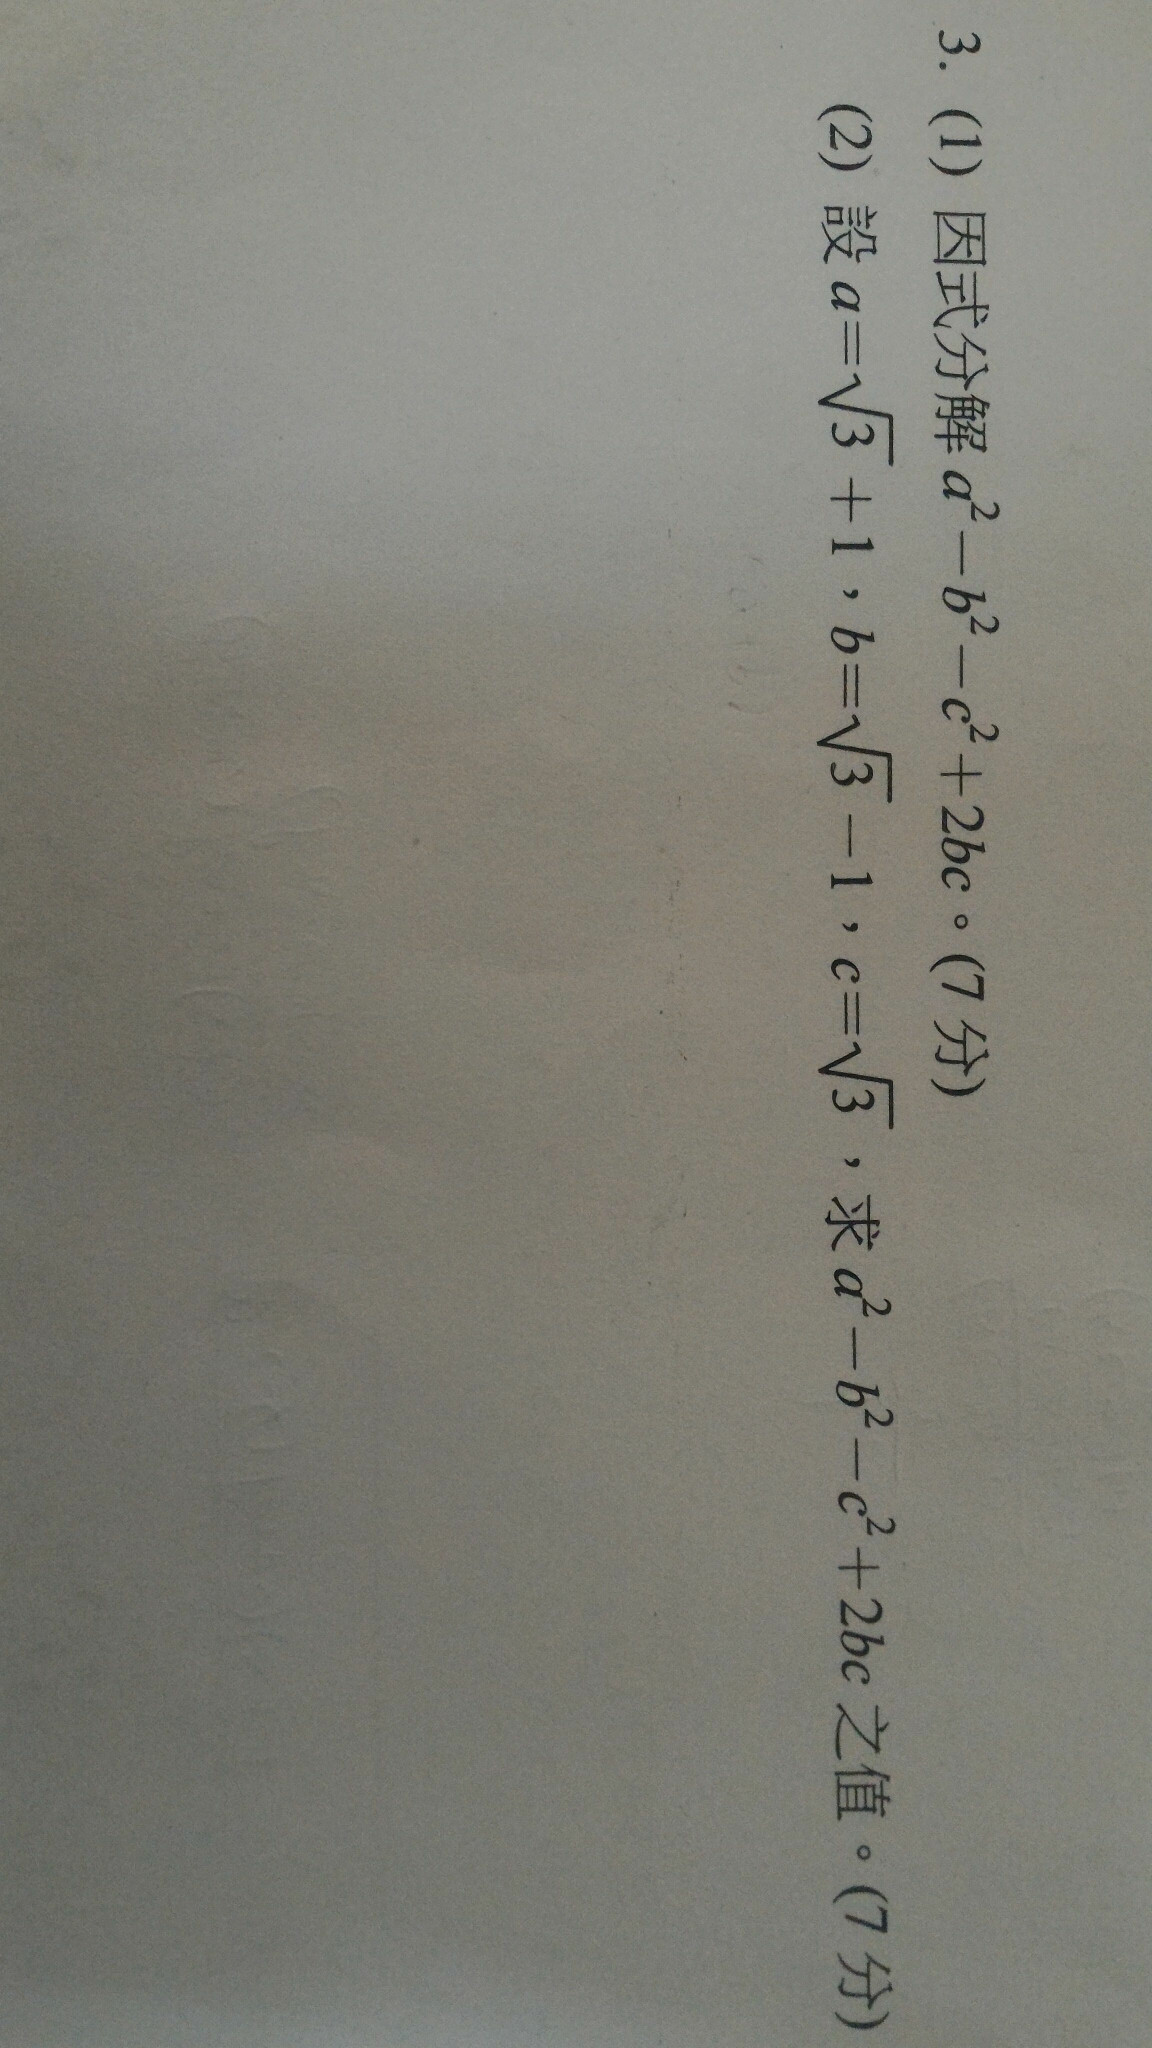 3. (1) 因式分解 a²－b²－c²＋2bc。(7 分)
(2) 設 a=√3＋1，b=√3－1，c=√3，求 a²－b²－c²＋2bc 之值。(7 分)